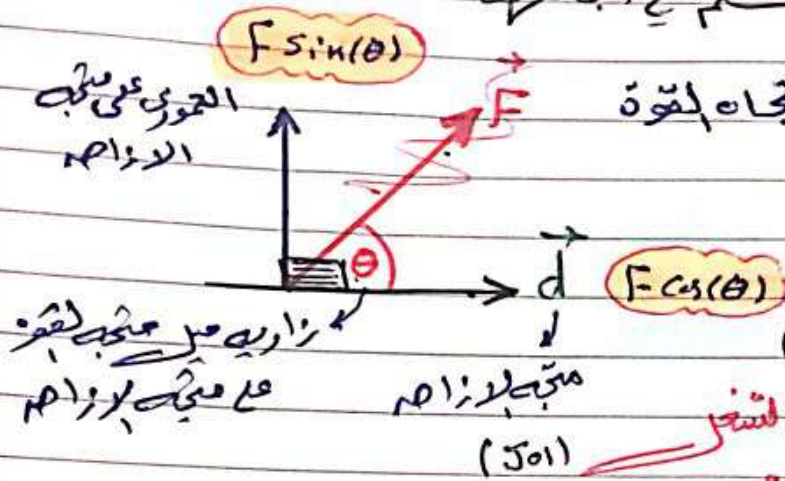 F Sin(θ)
العمودي على متجه
الازاحه
F
تجاه القوة
θ
d
F Cos(θ)
زاوية ميل متجه القوه
على متجه الازاحه
متجه الازاحه
الشغل
(Joul)